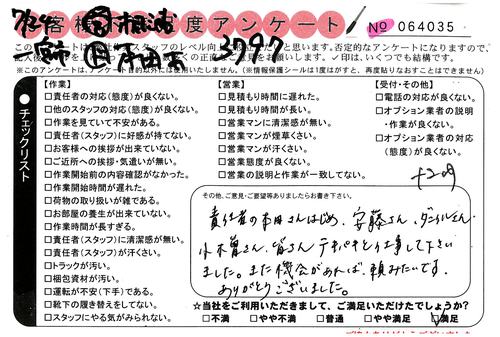 お客様満足度アンケート
No 064035
7/24
3997
※このアンケートは、アンケート目的以外には使用いたしません。(※情報保護シールは1度はがすと、再度貼りなおすことはできません)
チェックリスト
【作業】
□責任者の対応(態度)が良くない。
□他のスタッフの対応(態度)が良くない。
□作業を見ていて不安がある。
□責任者(スタッフ)に好感が持てない。
□お客様への挨拶が出来ていない。
□ご近所への挨拶・気遣いが無い。
□作業開始前の内容確認がなかった。
□作業開始時間が遅れた。
□荷物の取り扱いが雑である。
□お部屋の養生が出来ていない。
□作業時間が長すぎる。
□責任者(スタッフ)に清潔感が無い。
□責任者(スタッフ)が汗くさい。
□トラックが汚い。
□梱包資材が汚い。
□運転が不安(下手)である。
□靴下の履き替えをしてない。
□スタッフにやる気がみられない。
【営業】
□見積もり時間に遅れた。
□見積もり時間が長い。
□営業マンに清潔感が無い。
□営業マンが煙草くさい。
□営業マンが汗くさい。
□営業態度が良くない。
□営業の説明と作業が一致してない。
【受付・その他】
□電話の対応が良くない。
□オプション業者の説明・作業が良くない。
□オプション業者の対応(態度)が良くない。
その他、ご意見・ご要望等ありましたらお書き下さい。
責任者の本田さんはじめ、安藤さん、ダニエルさん、
小木曽さん、皆さんテキパキと仕事して下さい
ました。また機会があれば、頼みたいです。
ありがとうございました。
☆当社をご利用いただきまして、ご満足いただけたでしょうか?
□不満 □やや不満 □普通 □やや満足 ☑満足